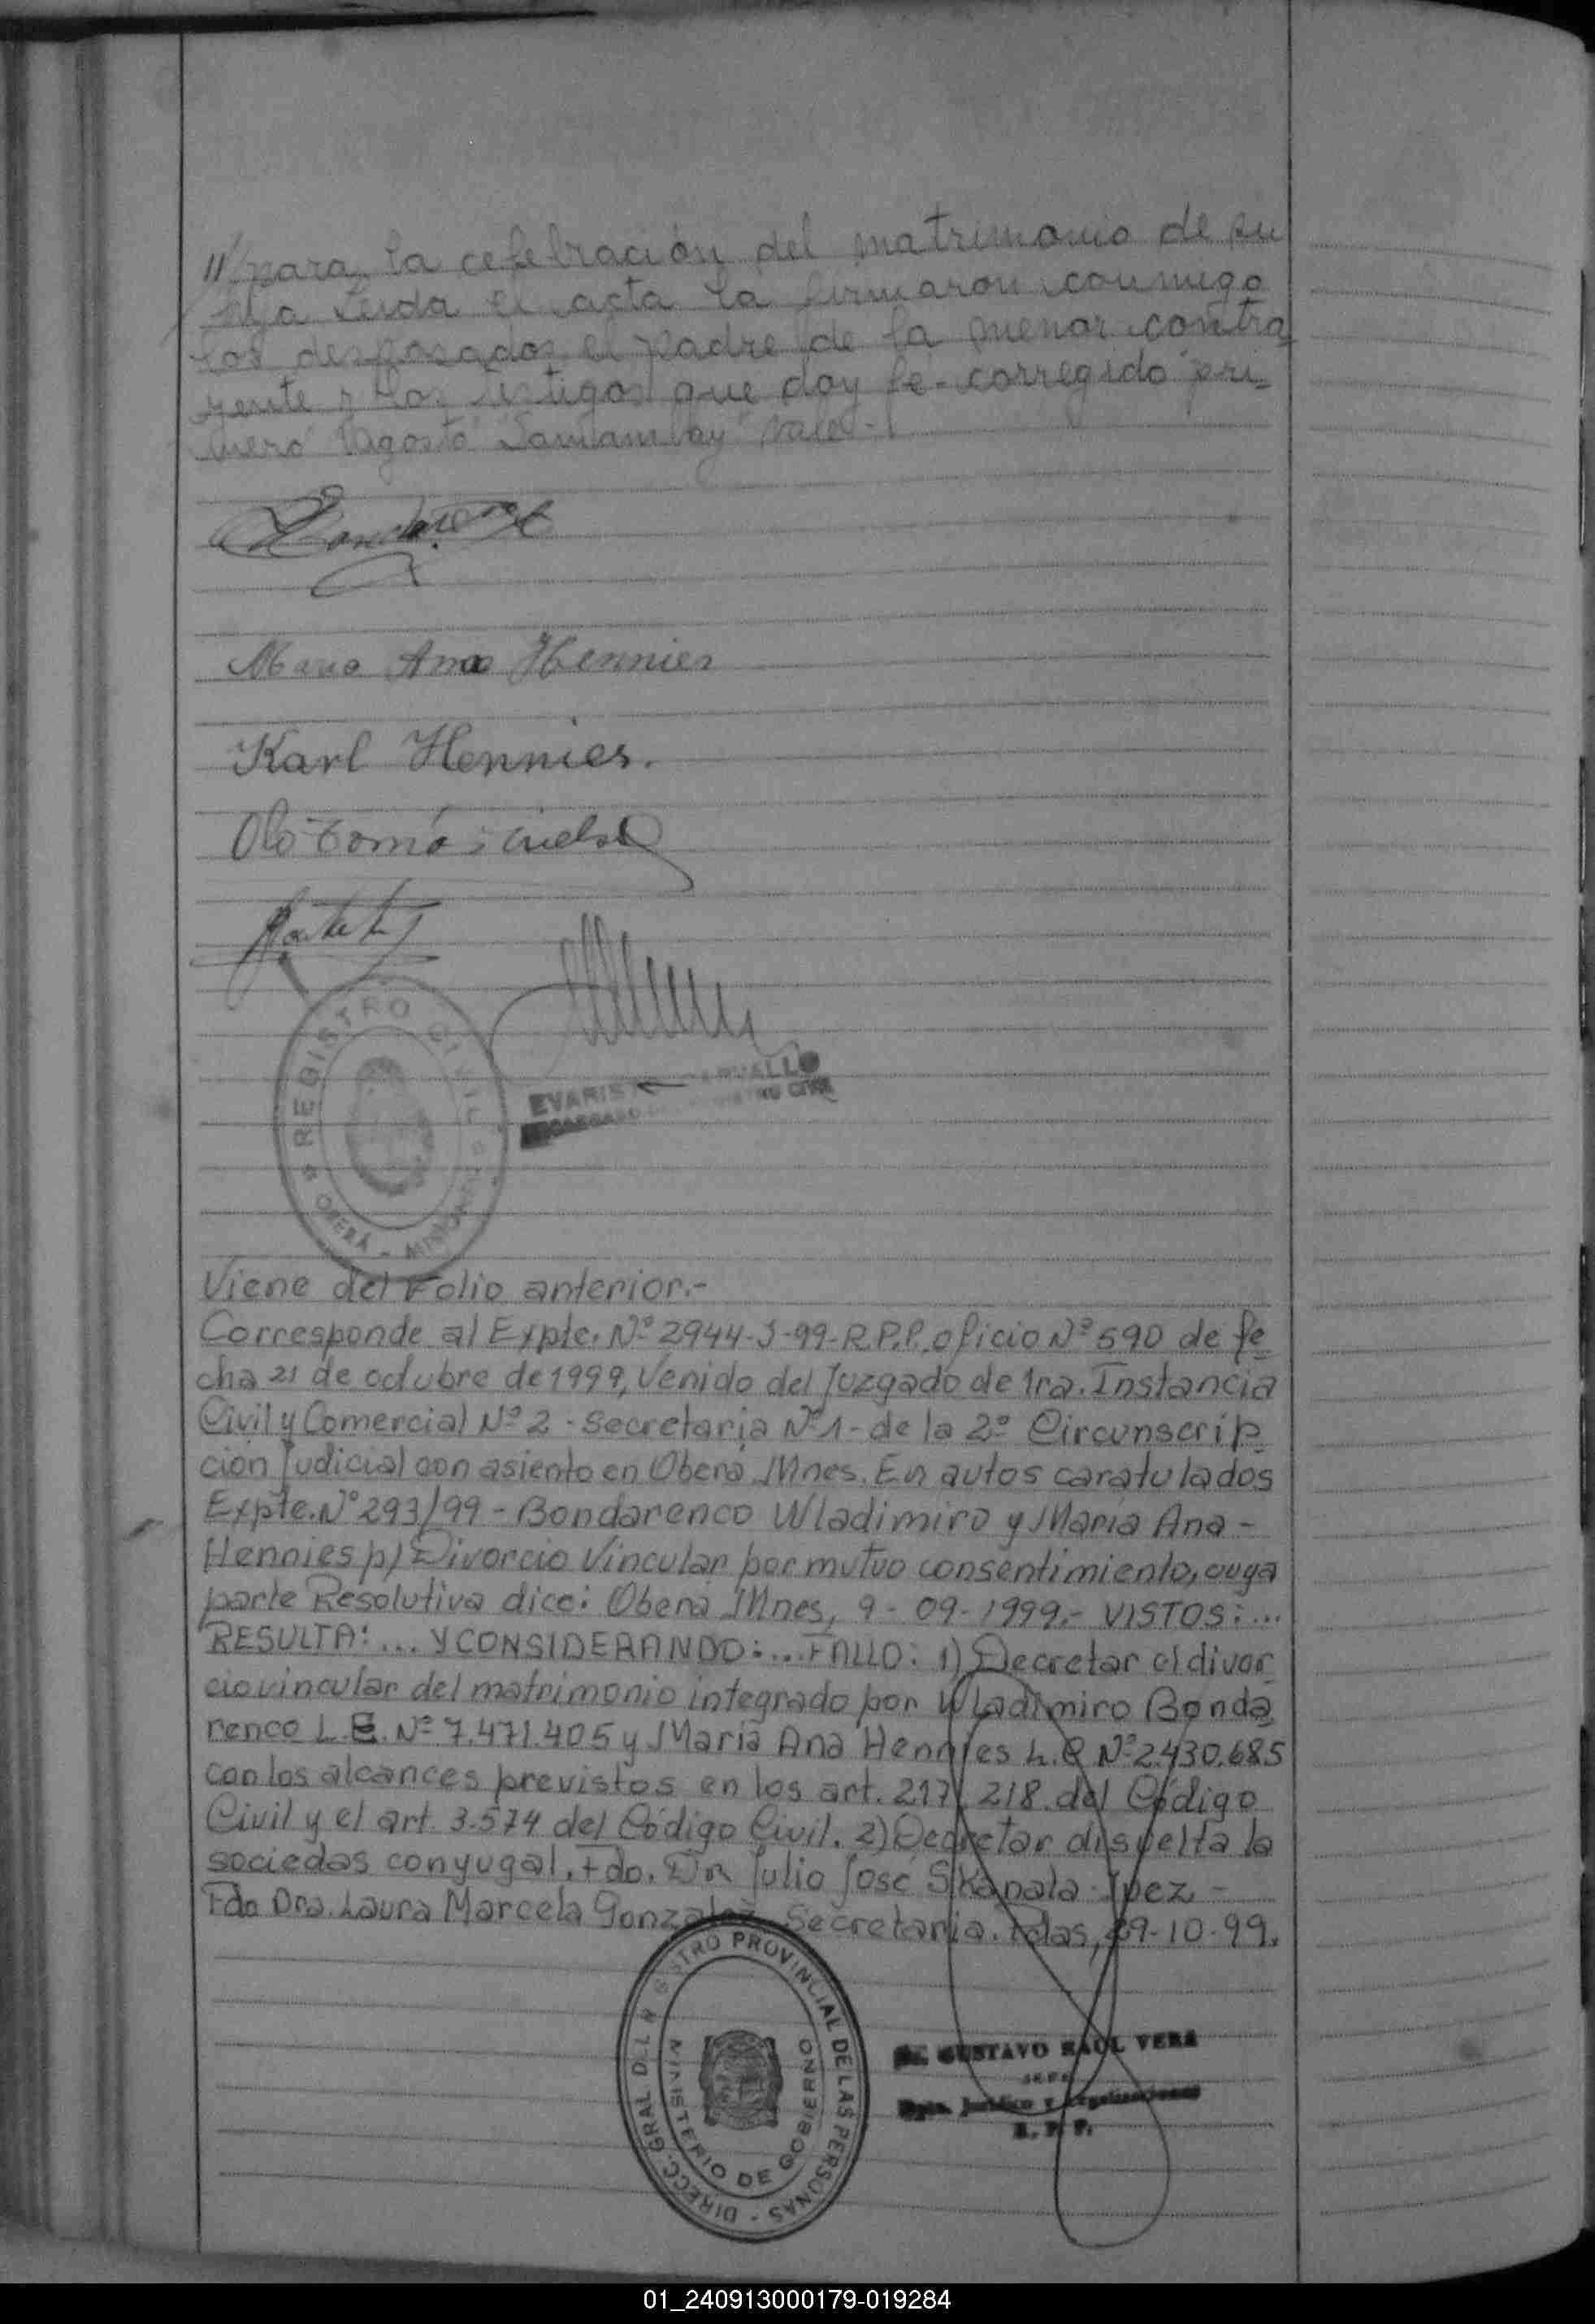 // para la celebración del matrimonio de su
hija Leida el acta la firmaron conmigo
los desposados el padre de la menor contra
yente y los testigos que doy fe - corregido "pri=
mero" "Agosto" "Samambay" Vale.-
Maria Ana Hennies
Karl Hennies.
REGISTRO CIVIL
OBERÁ - MISIONES
EVARISTO CARVALLO
ENCARGADO DEL REGISTRO CIVIL
Viene del Folio anterior.-
Corresponde al Expte. Nº 2944-J-99-R.P.P. oficio Nº 590 de fe
cha 21 de octubre de 1999, Venido del Juzgado de 1ra. Instancia
Civil y Comercial Nº 2 - Secretaria Nº 1 - de la 2º Circunscrip
ción Judicial con asiento en Oberá Mnes. En autos caratulados
Expte. Nº 293/99 - Bondarenco Wladimiro y María Ana -
Hennies p/ Divorcio Vincular por mutuo consentimiento, cuya
parte Resolutiva dice: Oberá Mnes, 9 - 09 - 1999.- VISTOS: ...
RESULTA: ... Y CONSIDERANDO: ... FALLO: 1) Decretar el divor
cio vincular del matrimonio integrado por Wladimiro Bonda
renco L.E. Nº 7.471.405 y María Ana Hennies L.C Nº 2.430.685
con los alcances previstos en los art. 217, 218. del Código
Civil y el art. 3.574 del Código Civil. 2) Decretar disuelta la
sociedas conyugal. Fdo. Dr Julio José Skanala - Juez -
Fdo Dra. Laura Marcela Gonzalez Secretaria. Pdas, 29-10-99.
DIRECC. GRAL DEL REGISTRO PROVINCIAL DE LAS PERSONAS -
MINISTERIO DE GOBIERNO
Dr. GUSTAVO RAUL VERA
JEFE
Dpto. Jurídico y Organizacional
R. P. P.
01_240913000179-019284